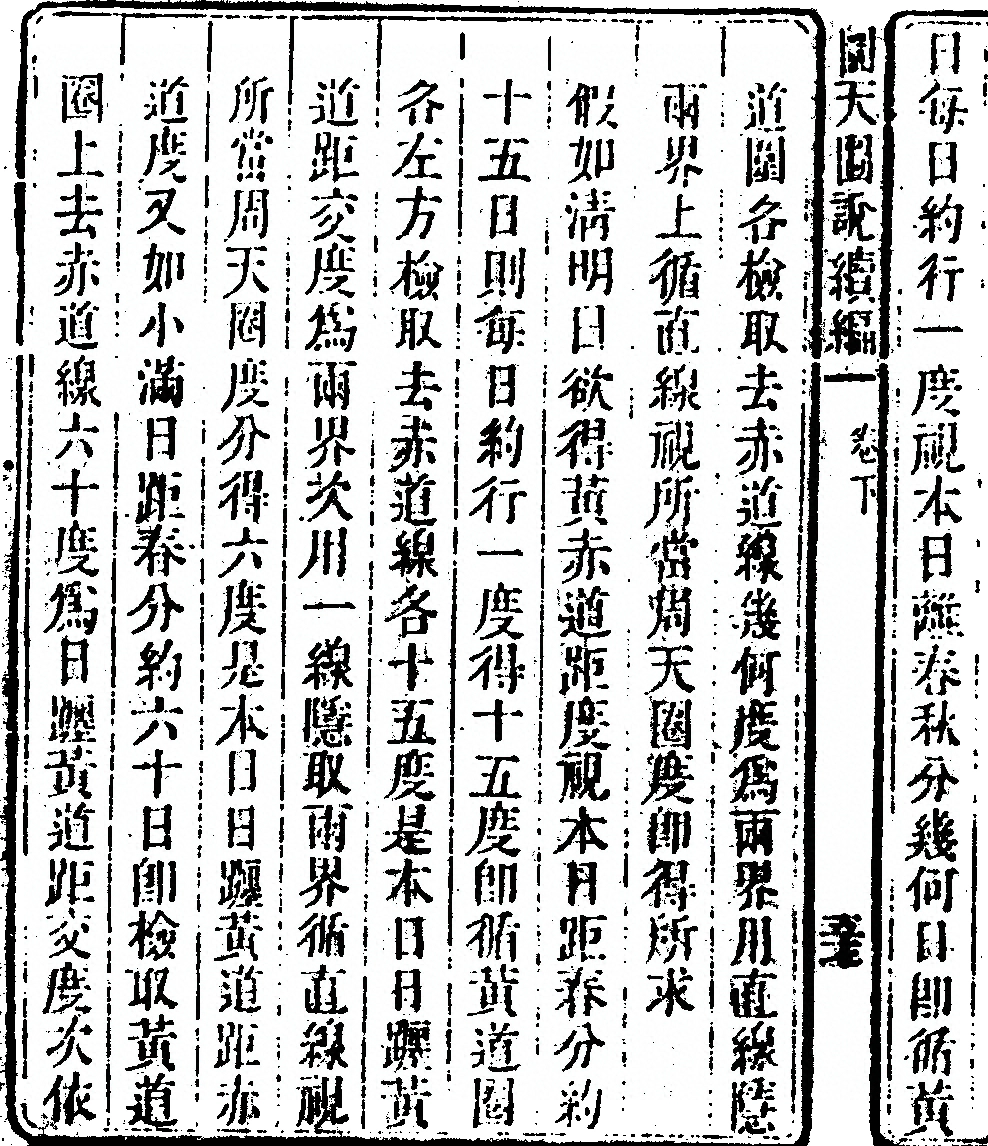 日每日約行一度視本日離春秋分幾何日卽循黃
圜天圖說續編 卷下
道圈各檢取去赤道線幾何度爲兩界用直線隱
兩界上循直線視所當周天圈度卽得所求
假如清明日欲得黃赤道距度視本日距春分約
十五日則每日約行一度得十五度卽循黃道圈
各左方檢取去赤道線各十五度是本日日躔黃
道距交度爲兩界次用一線隱取兩界循直線視
所當周天圈度分得六度是本日日躔黃道距赤
道度又如小滿日距春分約六十日卽檢取黃道
圈上去赤道線六十度爲日躔黃道距交度次依